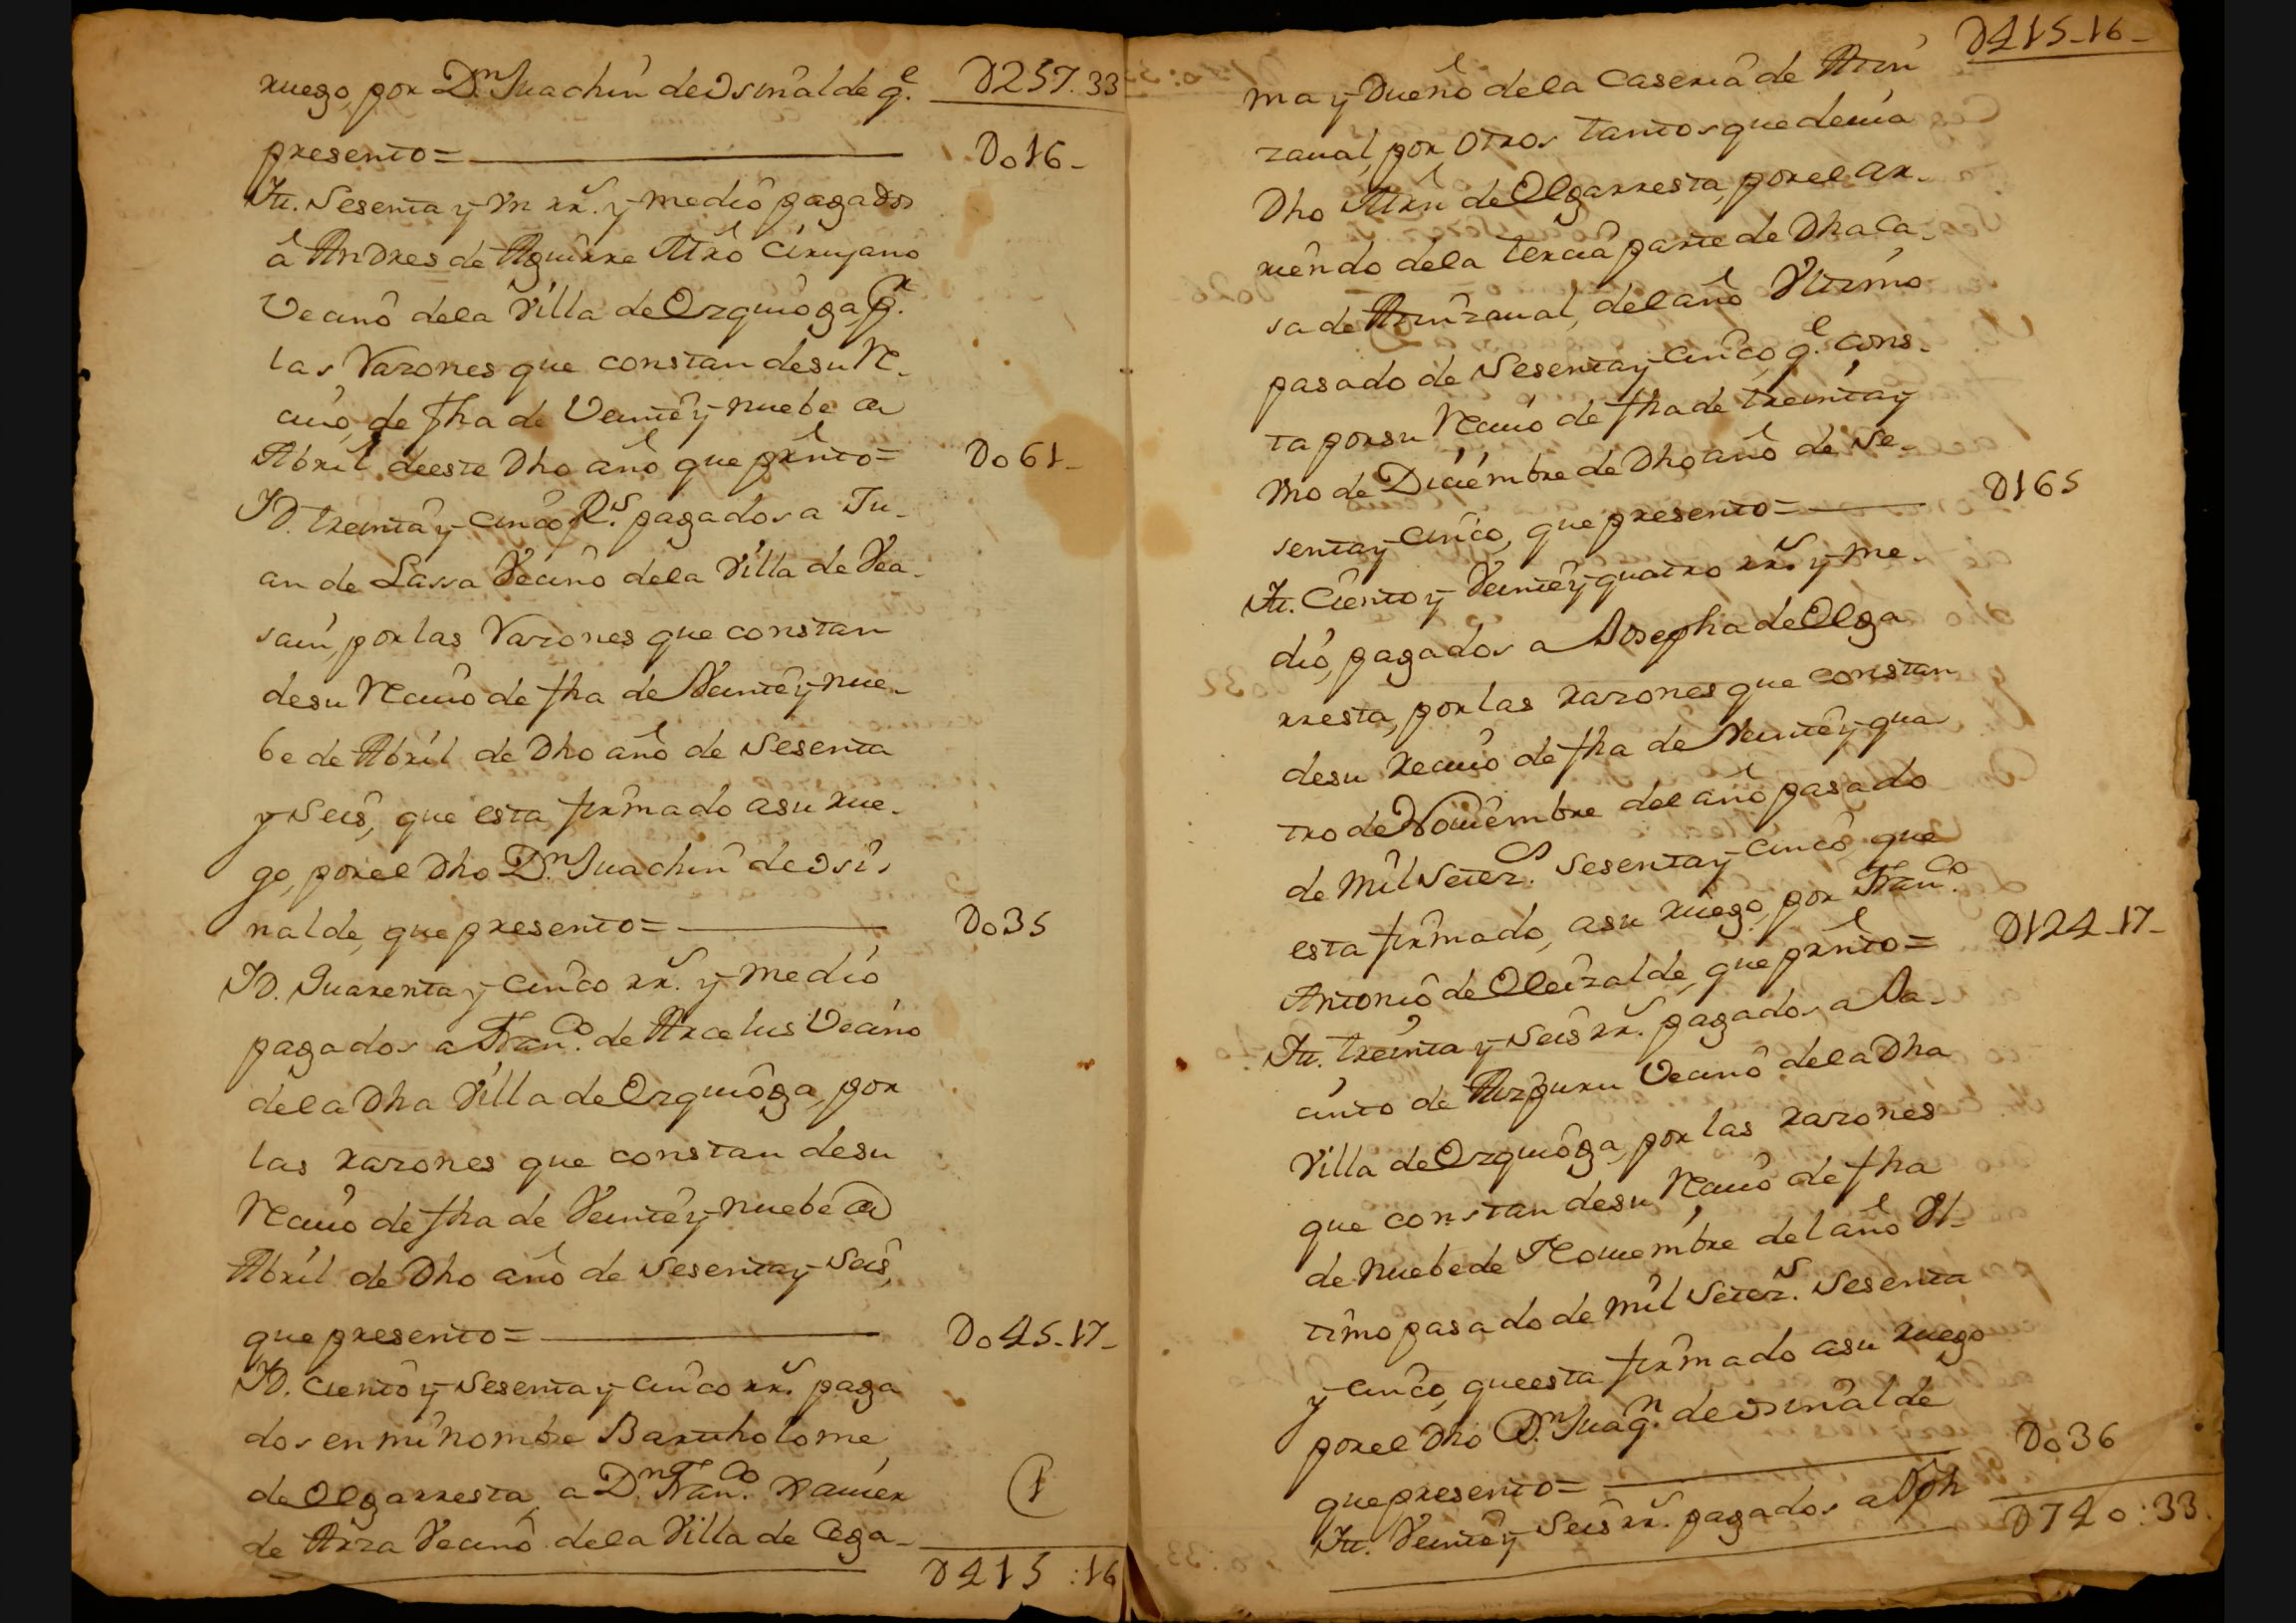 ruego, por Dn Juachin de Isinalde qe
D257.33
presento =
Do16-
Itt. Sesenta y un rrs. y medio pagados
â Andres de Aguirre Mro Cirujano
Vecino dela Villa de Ezquioga, pr.
las Razones que constan desu Re-
civo, de fha de Veinte y nuebe de
Abril deeste Dho año que presnto =
Do61-
ID. treinta y cinco Rs. pagados a Ju-
an de Lassa Vecino dela Villa de Vea-
sain, por las Razones que constan
desu Recivo de fha de Veinte y nue-
be de Abril de Dho año de Sesenta
y Seis, que esta firmado asu rue-
go, por el Dho Dn. Juachin de Isi-
nalde, que presento =
Do35
ID. Quarenta y cinco rrs. y medio
pagados a Franco. de Arcelus Vecino
dela Dha Villa de Ezquioga, por
las razones que constan desu
Recivo de fha de Veinte y nuebe de
Abril de Dho año de Sesenta y Seis,
que presento =
Do45-17-
ID. Ciento y Sesenta y cinco rrs. paga
dos en mi nombre Bartholome
de Olgarresta, a Dn Franco. Xavier
de Arza Vecino dela Villa de Cega-
D415:16
D415-16-
ma y Dueño dela Caseria de Atin
zaual, por otros tantos que devia
Dho Mrn de Olgarresta, por el ar-
riendo dela tercia parte de Dha Ca-
sa de Atinzaual, del año Vltimo
pasado de Sesenta y cinco, qe. cons-
ta por su Recivo de fha de treinta y
uno de Diciembre de Dho año de Se-
senta y cinco, que presento =
D165
Itt. Ciento y Veinte y quatro rrs. y me-
dio, pagados a Josepha de Olga
rresta, por las razones que constan
desu recivo de fha de Veinte y qua
tro de Noviembre del año pasado
de mil Setezs. Sesenta y cinco que
esta firmado, asu ruego, por Franco.
Antonio de Oleizalde, que presnto =
D124-17-
Itt. treinta y Seis rrs. pagados a Ja-
cinto de Aizpuru Vecino dela Dha
Villa de Ezquioga, por las razones
que constan desu Recivo de fha
de nuebe de Noviembre del año Vl-
timo pasado de mil Setezs. Sesenta
y cinco, que esta firmado asu ruego
por el Dho Dn. Juaqn. de Isinalde
que presento =
Do36
Itt. Veinte y Seis rrs. pagados a Jph
D740:33.